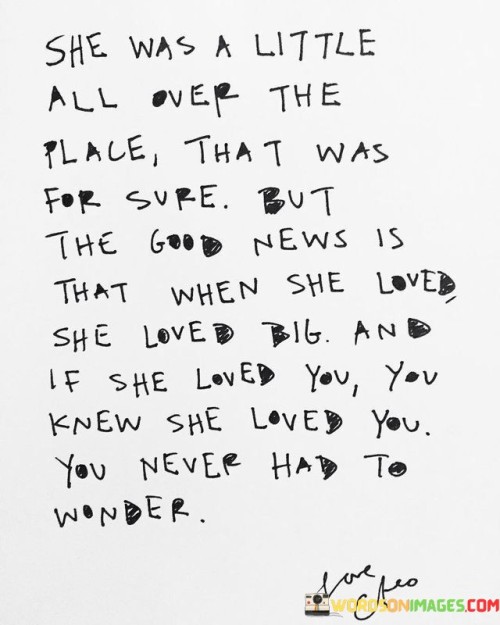 SHE WAS A LITTLE
ALL OVER THE
PLACE, THAT WAS
FOR SURE. BUT
THE GOOD NEWS IS
THAT WHEN SHE LOVED,
SHE LOVED BIG. AND
IF SHE LOVED YOU, YOU
KNEW SHE LOVED YOU.
YOU NEVER HAD TO
WONDER.
love Cleo
WORDSONIMAGES.COM